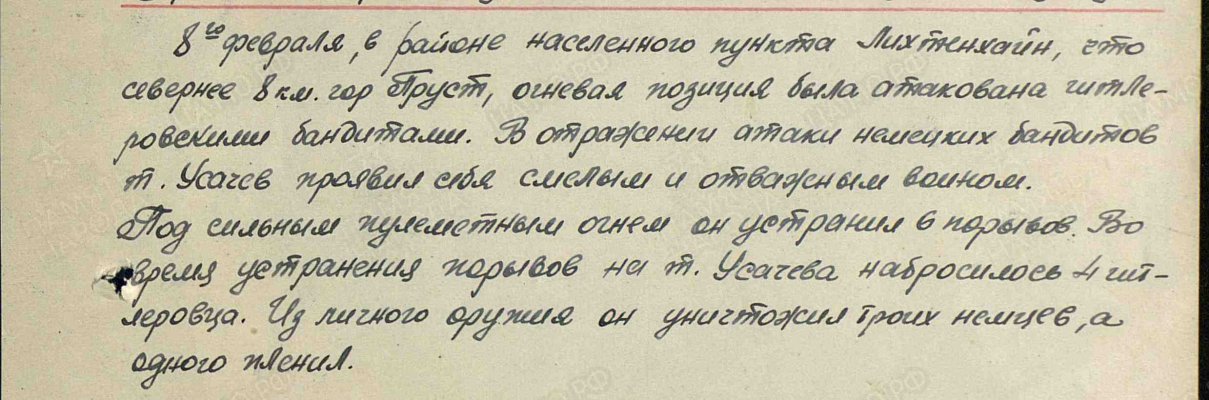 8го февраля, в районе населенного пункта Лихтенхайн, что
севернее 8 км. гор Пруст, огневая позиция была атакована гитле-
ровскими бандитами. В отражении атаки немецких бандитов
т. Усачев проявил себя смелым и отважным воином.
Под сильным пулеметным огнем он устранил 6 порывов. Во
время устранения порывов на т. Усачева набросилось 4 гит-
леровца. Из личного оружия он уничтожил троих немцев, а
одного пленил.